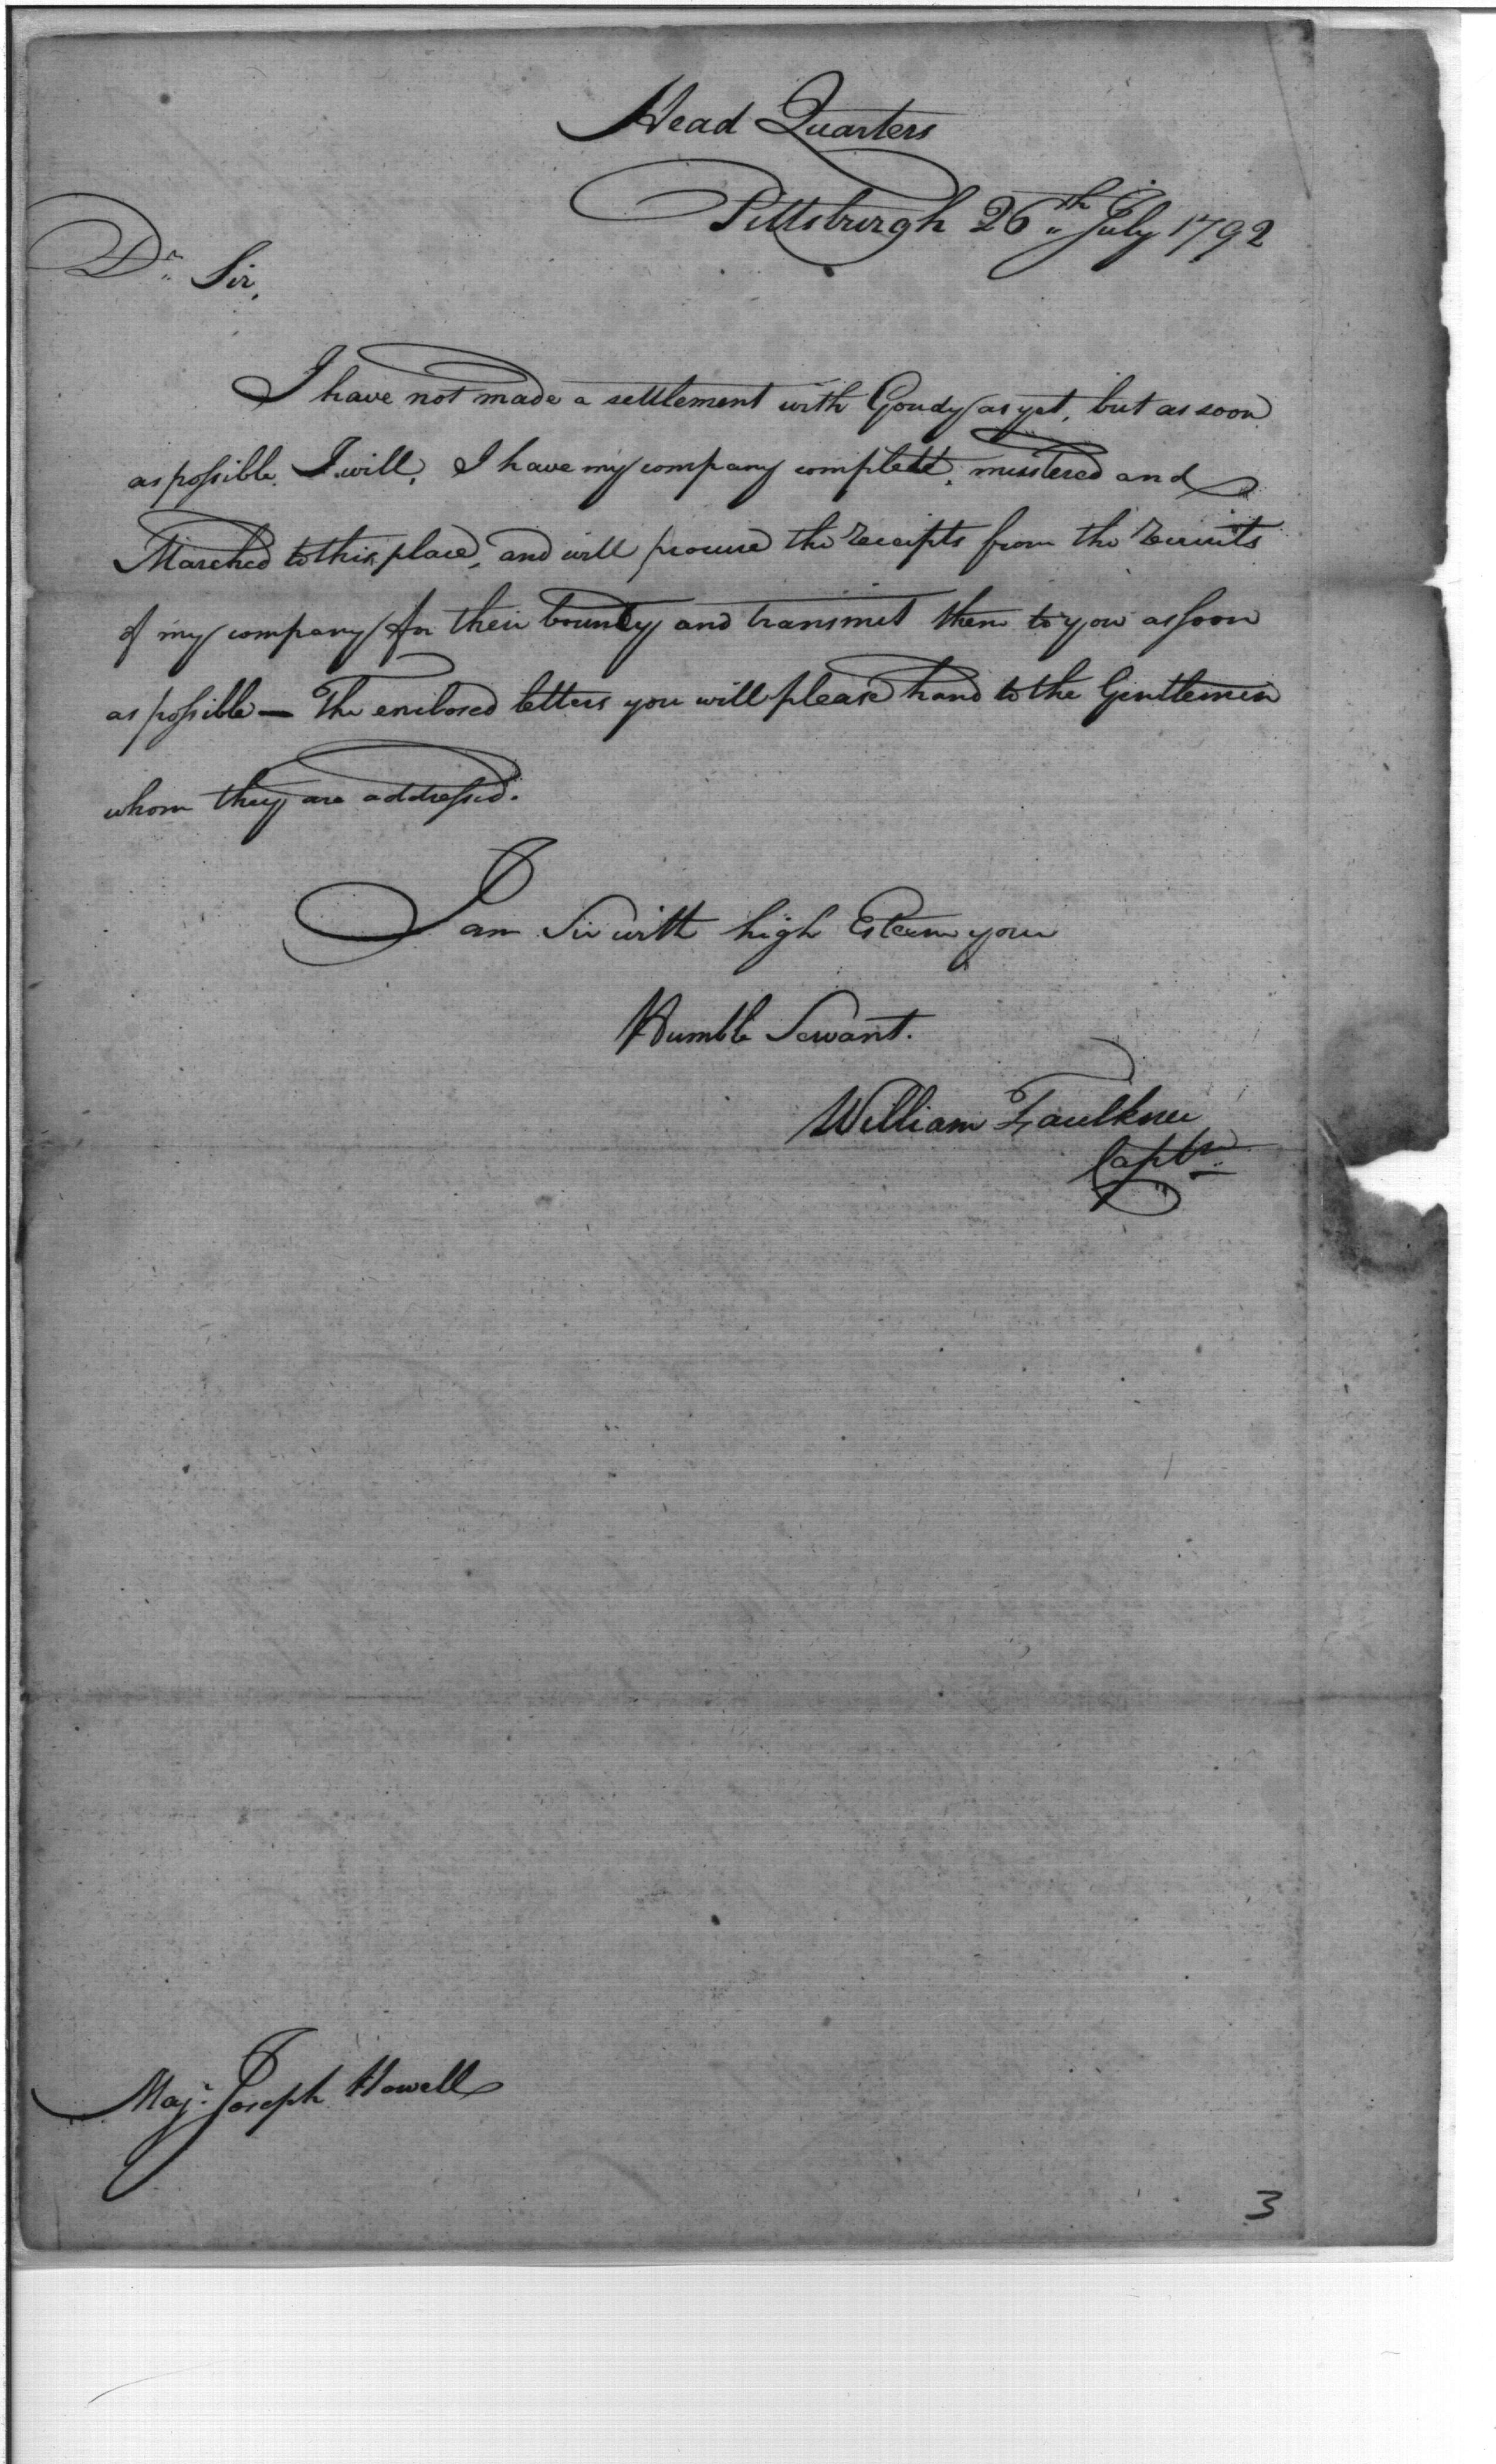 Head Quarters
Pittsburgh 26th July 1792
Dr Sir,
I have not made a settlement with Goudy as yet, but as soon
as possible I will, I have my company complete, musstered and
Marched to this place, and will procure the receipts from the recruits
of my company for their bounty and transmit them to you as soon
as possible — The enclosed letters you will please hand to the Gentlemen
whom they are addressed.
I am Sir with high Esteem your
Humble Servant.
William Faulkner
Captn
Majr Joseph Howell
3